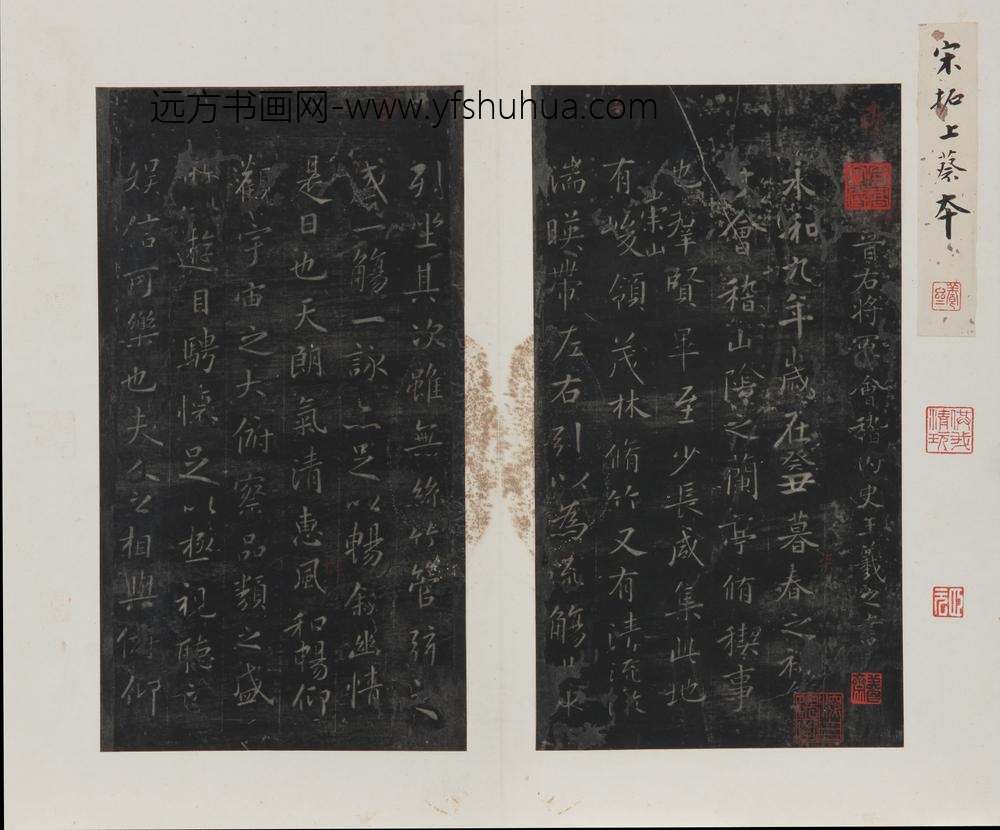 宋拓上蔡本
晉右將軍會稽内史王羲之書
永和九年歲在癸丑暮春之初
于會稽山陰之蘭亭脩稧事
也羣賢畢至少長咸集此地
有崇山峻領茂林脩竹又有清流激
湍暎帶左右引以為流觴曲水
列坐其次雖無絲竹管弦之
盛一觴一詠亦足以暢敘幽情
是日也天朗氣清惠風和暢仰
觀宇宙之大俯察品類之盛
所以遊目騁懷足以極視聽之
娛信可樂也夫人之相與俯仰
远方书画网-www.yfshuhua.com